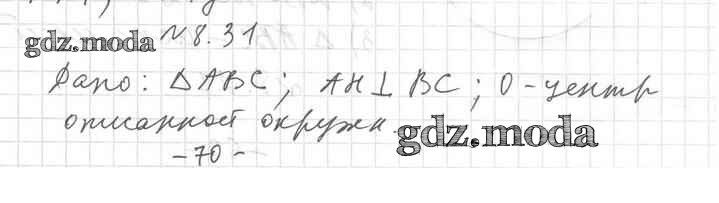 gdz.moda №8.31
Дано: △ABC; AH⊥BC; O-центр
описанной окружн. gdz.moda
-70-